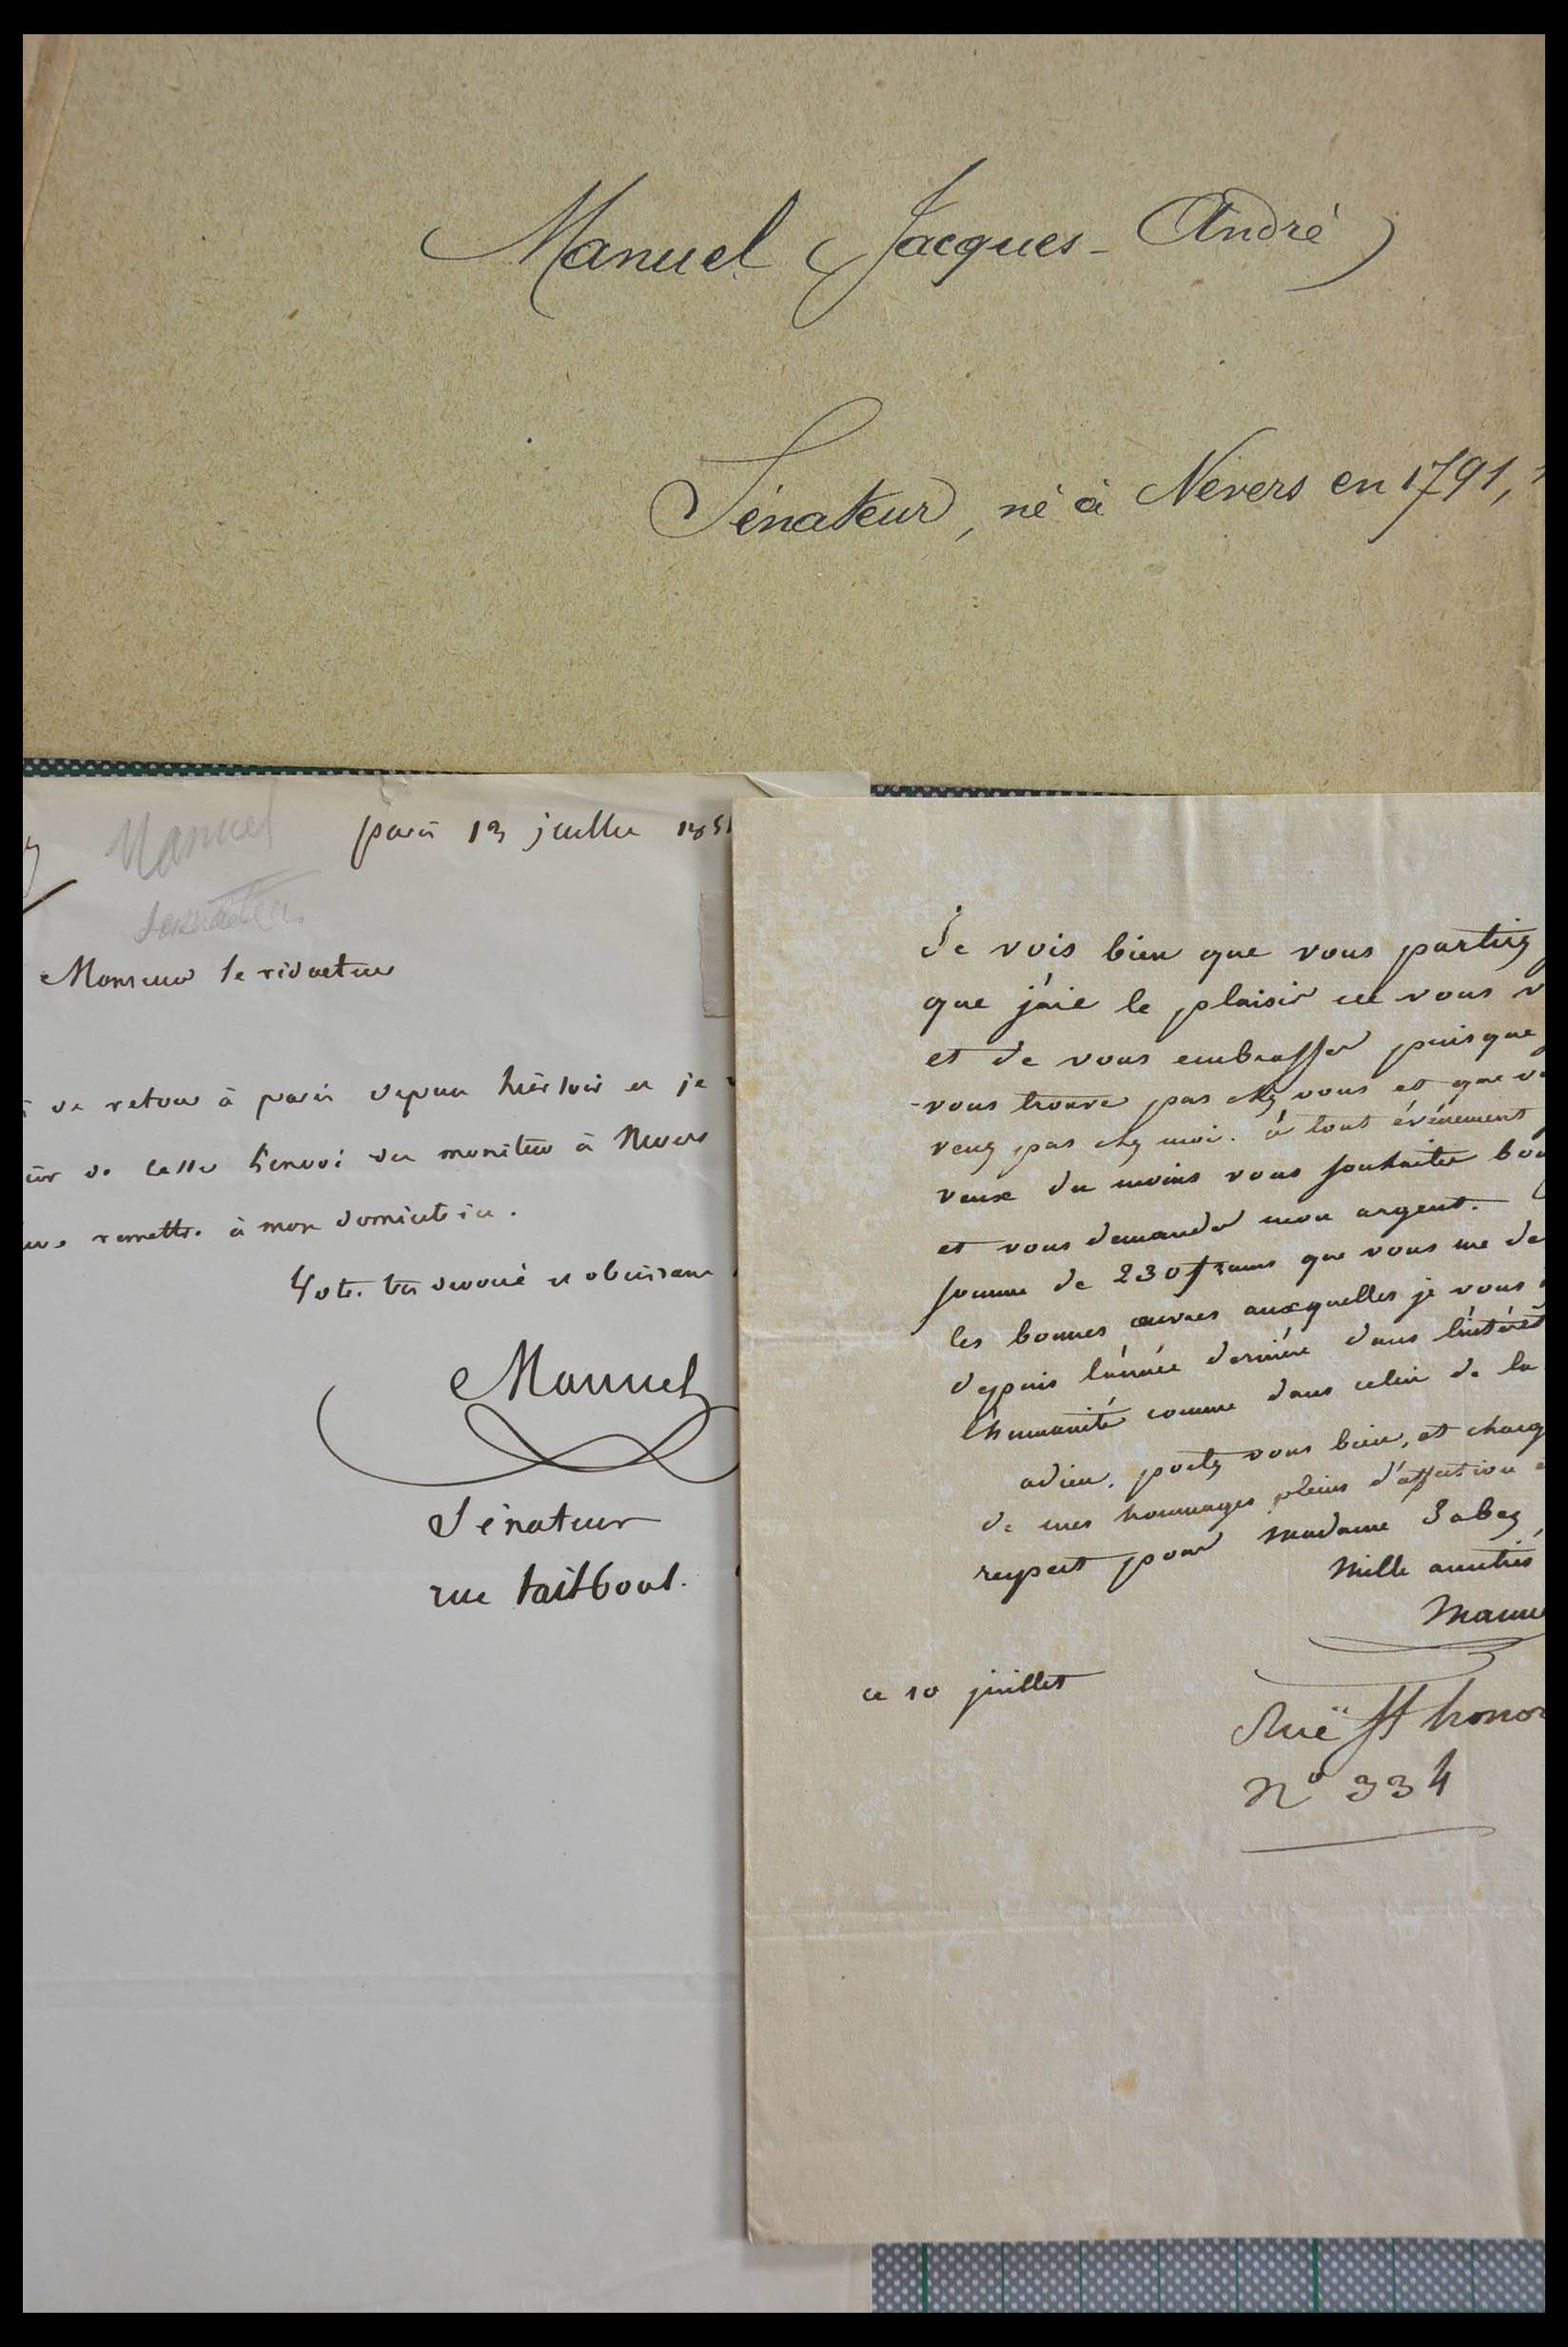 Manuel Jacques-André
Sénateur, né à Nevers en 1791,
Manuel
Senateur
paris 13 juillet 185
Monsieur le rédacteur
de retour à paris depuis hier soir et je
de cesser l'envoi du moniteur à Nevers
remettre à mon domicile ici.
Votre très dévoué et obéissant
Manuel
Sénateur
rue taitbout.
Je vois bien que vous partirez
que j'aie le plaisir de vous v
et de vous embrasser puisque
vous trouve pas chez vous et que v
venez pas chez moi. à tout événement
veux du moins vous souhaiter bon
et vous demander mon argent.
somme de 230 francs que vous me de
les bonnes œuvres auxquelles je vous
depuis l'année dernière dans l'intérêt
l'humanité comme dans celui de la
adieu, portez vous bien, et charg
de mes hommages pleins d'affection
respect pour madame
Mille amitiés
Manue
ce 10 juillet
Rüe St honor
N° 334